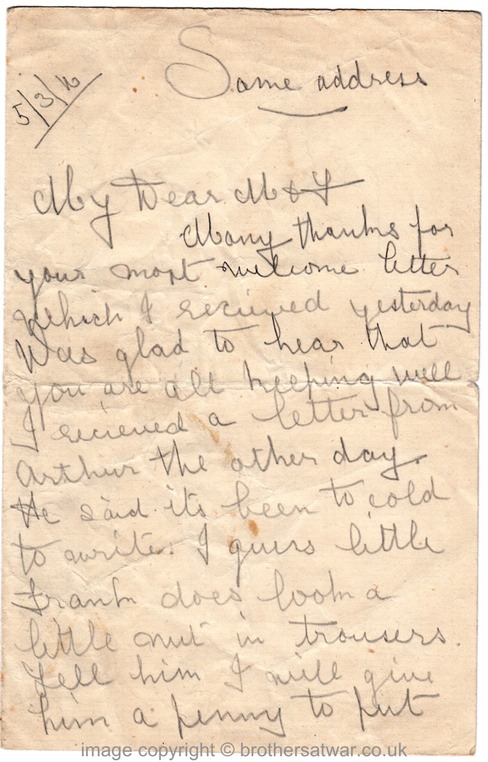 Same address
5/3/16
My Dear M & F
Many thanks for
your most welcome letter
which I recieved yesterday
Was glad to hear that
you are all keeping well
I recieved a letter from
Arthur the other day.
He said its been to cold
to write. I guess little
Frank does look a
little nut in trousers.
Tell him I will give
him a penny to put
image copyright © brothersatwar.co.uk